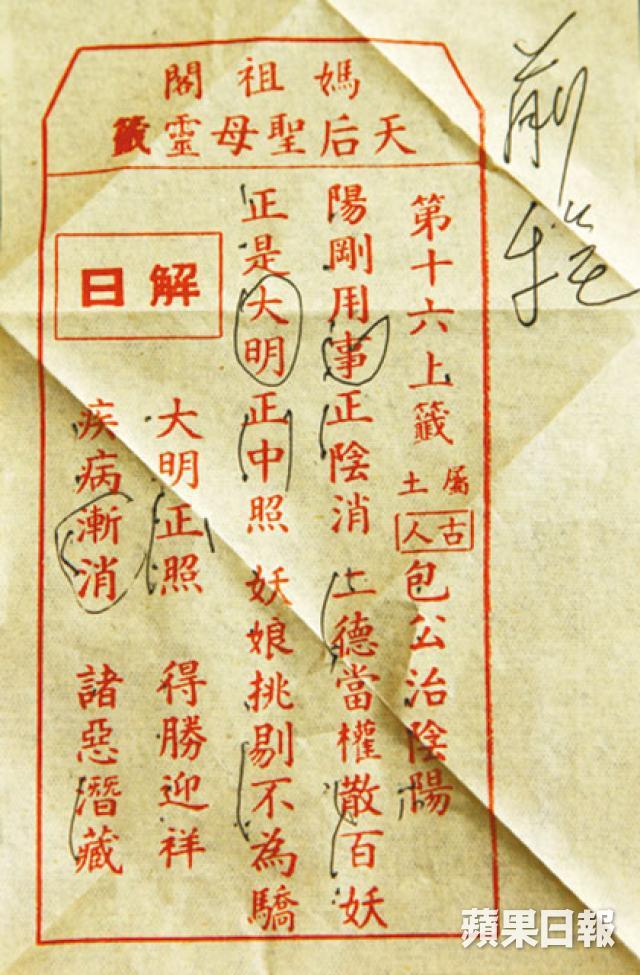 媽祖閣
天后聖母靈籤
第十六上籤 屬土 古人 包公治陰陽
陽剛用事正陰消 上德當權散百妖
正是大明正中照 妖娘挑剔不為驕
解曰
大明正照 得勝迎祥
疾病漸消 諸惡潛藏
蘋果日報